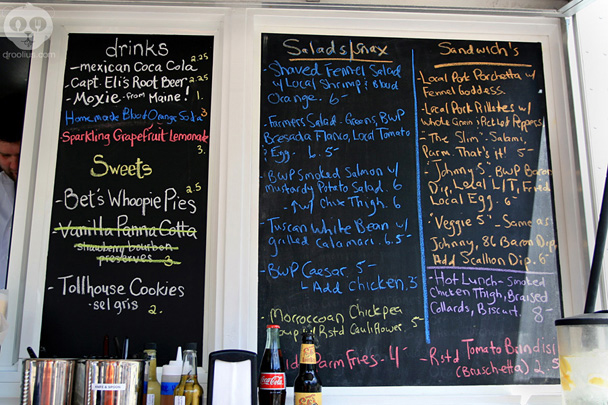 droolius.com
drinks
-mexican Coca Cola 2.25
-Capt. Eli's Root Beer 2.25
-Moxie -from Maine! 1.
Homemade Blood Orange Soda 3
-Sparkling Grapefruit Lemonade
3.
Sweets
-Bet's Whoopie Pies 2.5
-Vanilla Panna Cotta
strawberry bourbon
preserves 3
-Tollhouse Cookies
-sel gris 2.
Salads|Snax
-Shaved Fennel Salad
w/ Local Shrimp & Blood
Orange. 6-
-Farmers Salad - Greens, BWP
Local Tomato
& Egg. 6.5
-BWP Smoked Salmon w/
mustardy Potato Salad. 6
w/ Chix Thigh. 6
-Tuscan White Bean w/
grilled calamari. 6.5-
-BWP Caesar. 5-
Add chicken. 3
-Morroccoan Chickpea
Soup w/ Rstd Cauliflower. 5
Farm Fries. -4-
Sandwich's
-Local Pork Porchetta w/
Fennel Goddess.
-Local Pork Rillettes w/
Whole Grain & Pickled Peppers
-"The Slim"- Salami,
Parm. That's it! 5-
-"Johnny 5" BWP Bacon
Dip, Local L/T, Fried
Local Egg. 6-
-"Veggie 5"- Same as
Johnny, 86 Bacon Dip
Add Scallion Dip. 6-
-Hot Lunch- Smoked
Chicken Thigh, Braised
Collards, Biscuit. 8-
-Rstd Tomato
(Bruschetta) 2.5
Coca-Cola